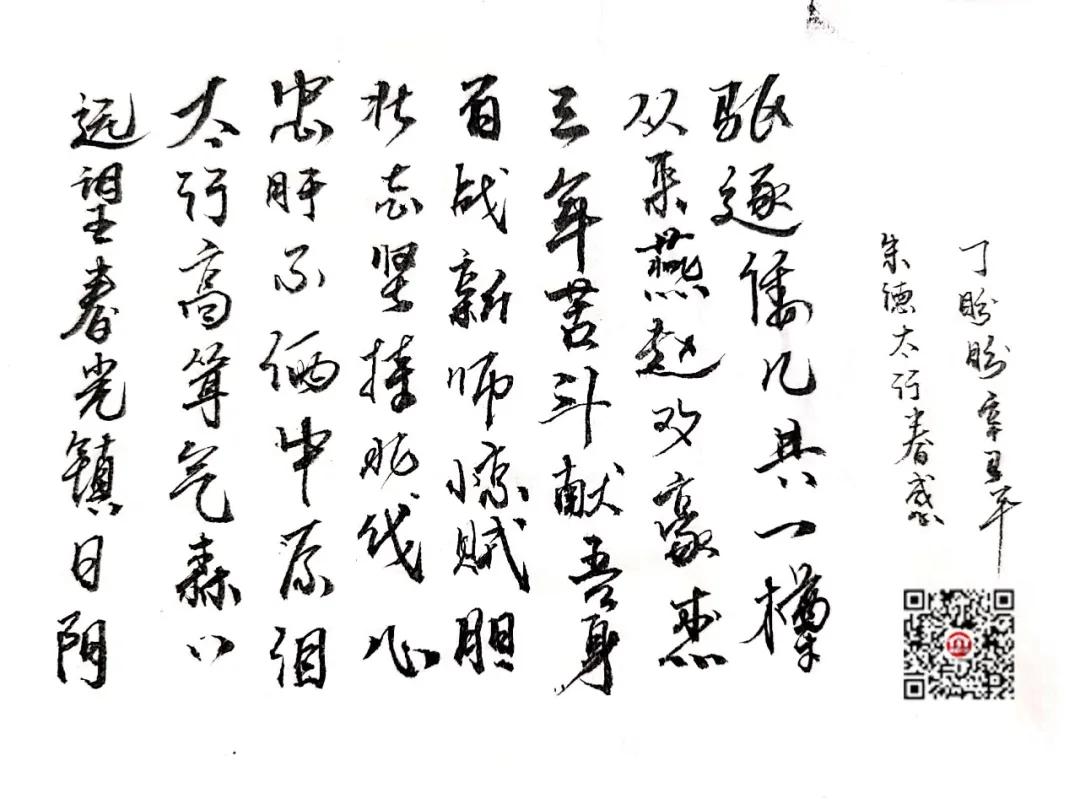 远望春光镇日阴
太行高耸气森〻
忠肝不洒中原泪
壮志坚持北伐心
百战新师惊贼胆
三年苦斗献吾身
从来燕赵多豪杰
驱逐倭儿共一樽
朱德太行春感
丁盼盼辛丑年